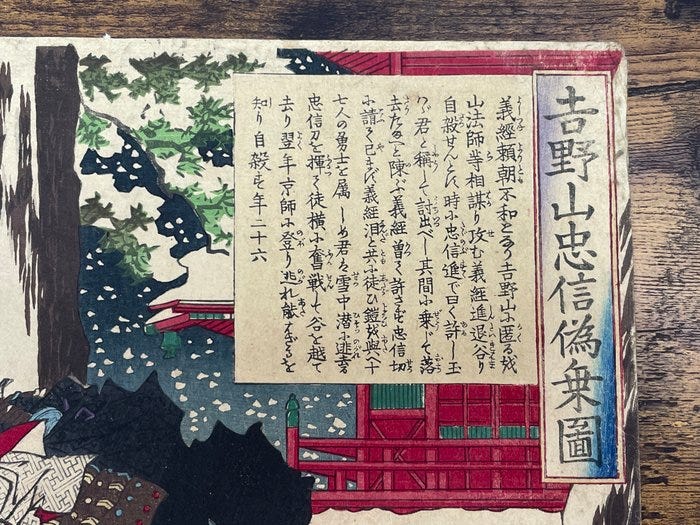 吉野山忠信偽乗圖
義經頼朝不和となり吉野山に匿る妓
山法師等相謀り攻む義經進退谷り
自殺せんとに時に忠信進で曰く許し玉
君と稱して討出べし其間に乗じて落
去たまへと陳ぶ義經曽て許さず忠信切
に請て已まず義經泪と共に徒ひ鎧を與へ十
七人の勇士を属しめ君は雪中潜に逃奔す
忠信刀を揮て從横に奮戦して谷を越て
去り翌年京師に登り逃れ敵すべからざるを
知り自殺す年二十六